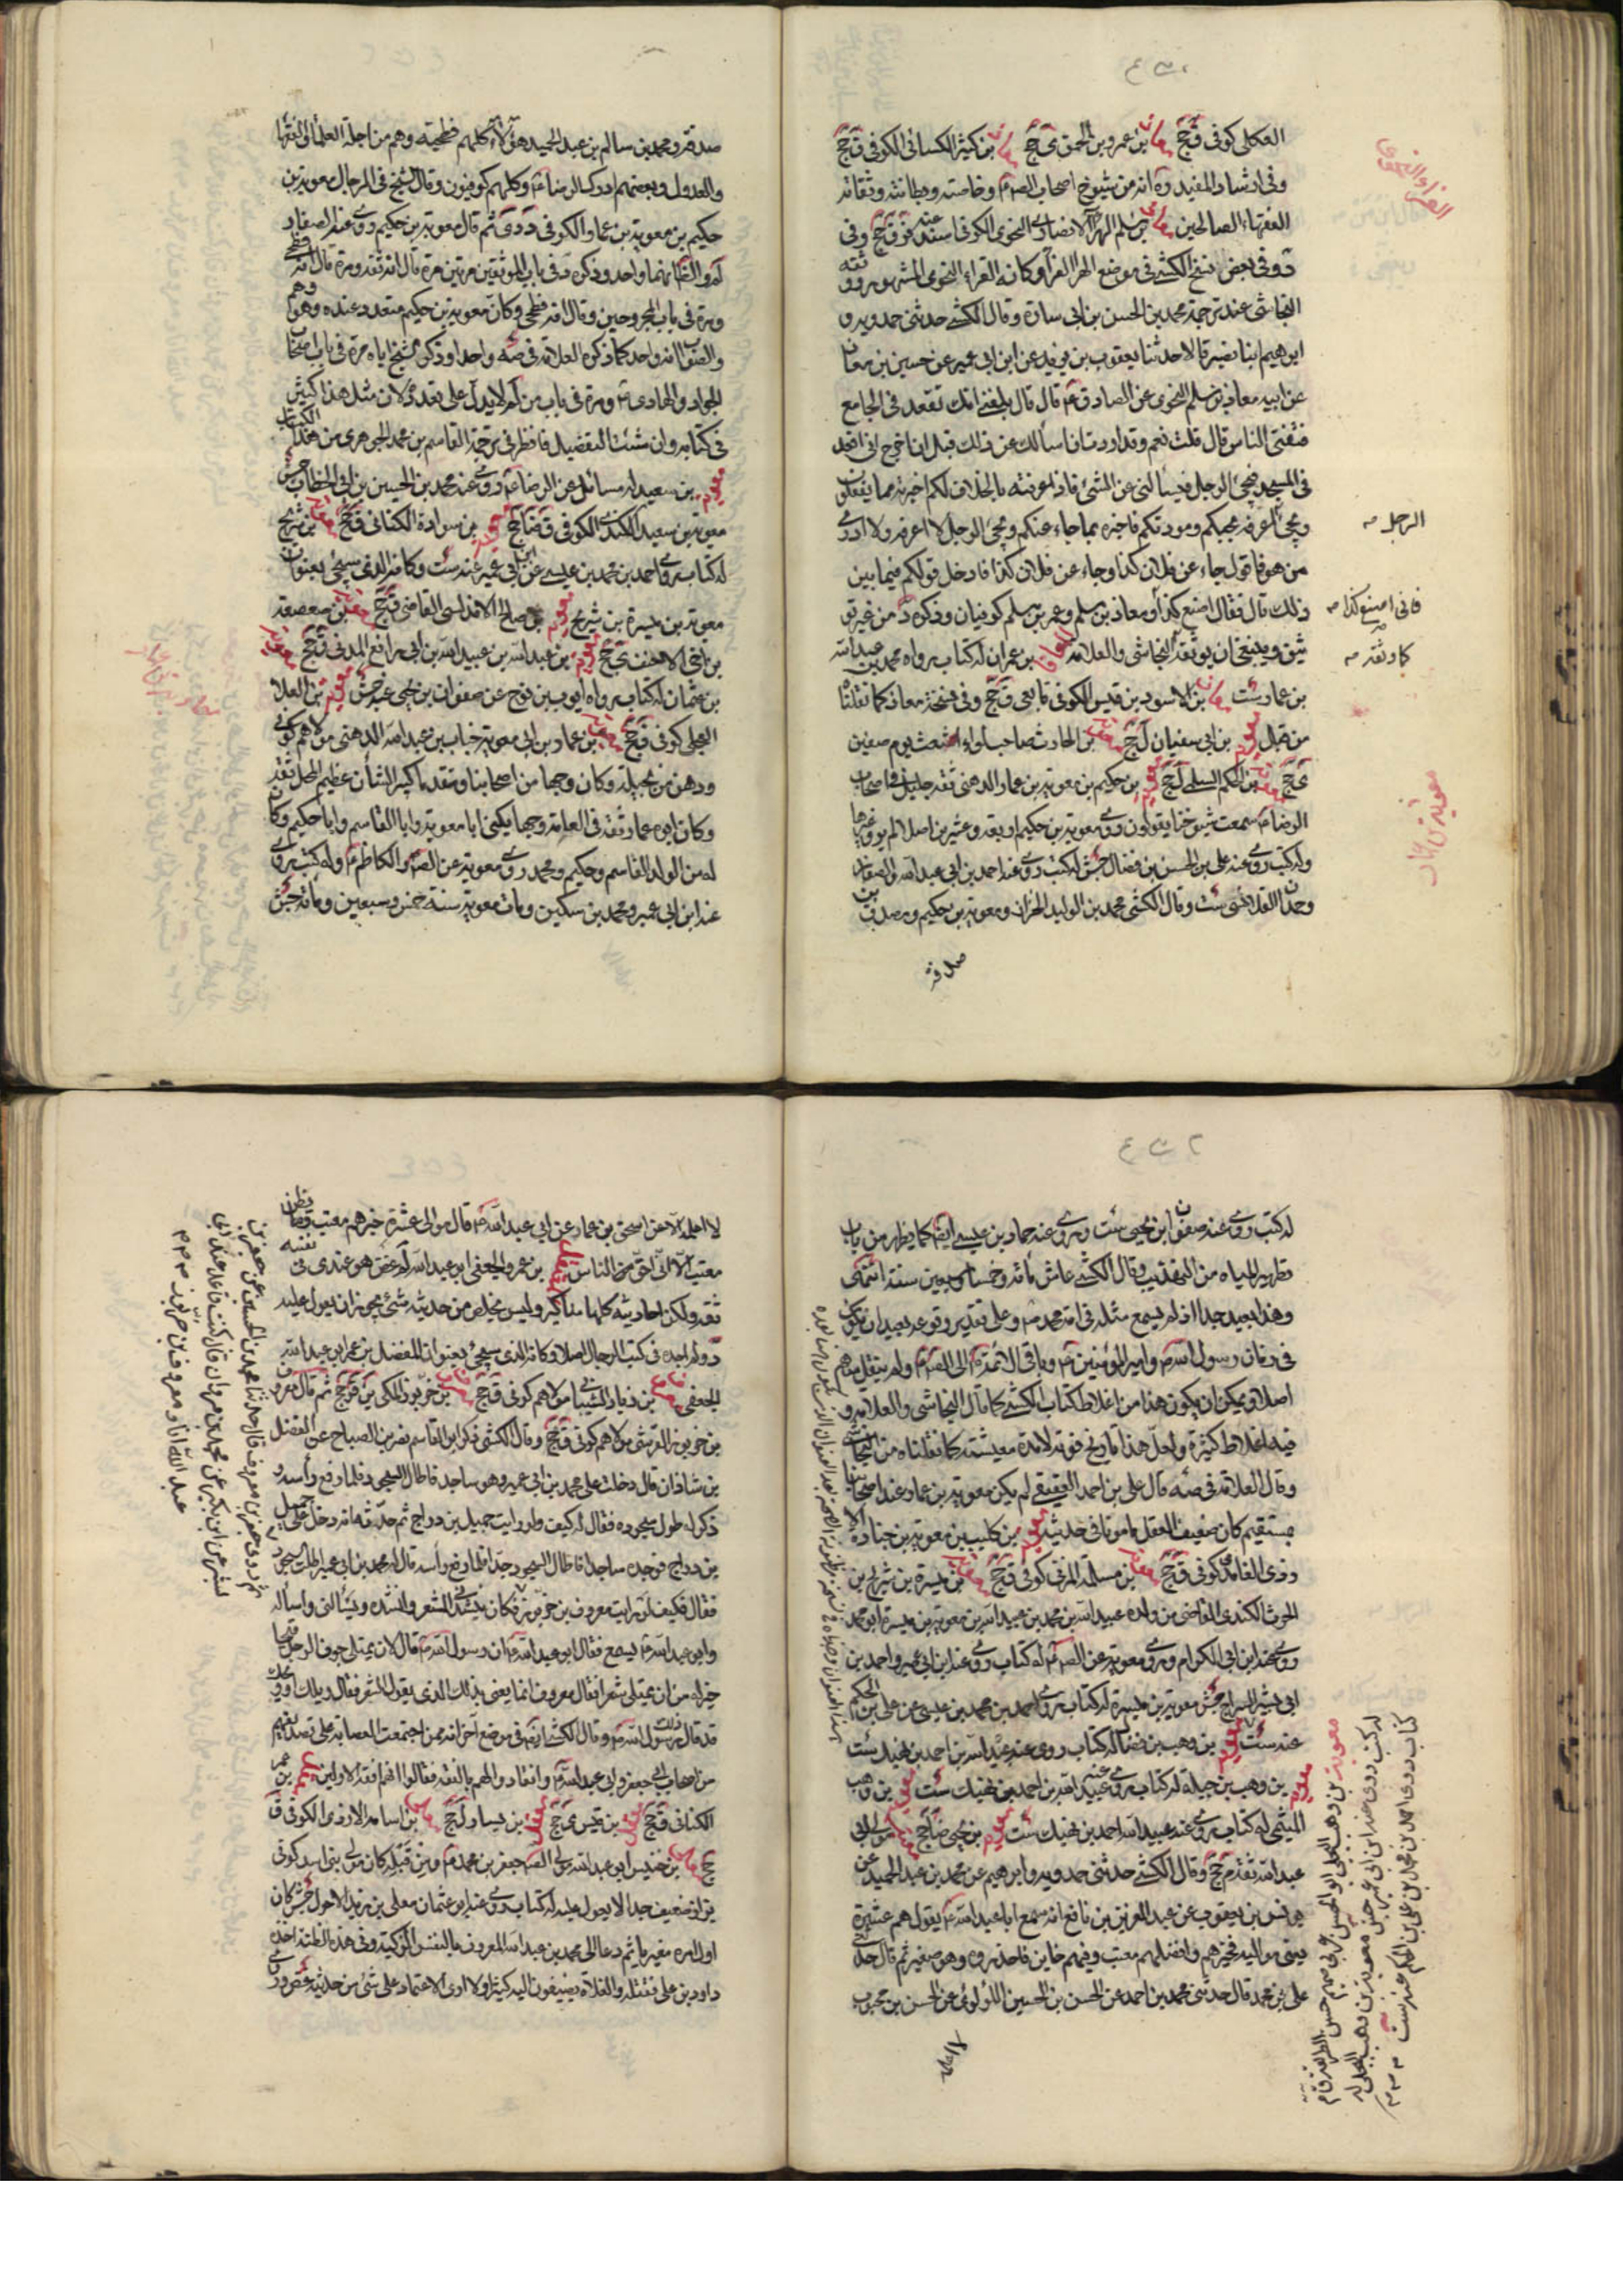 العكلى كوفى ق جخ معاذ بن عمرو بن الحمق ى جخ معاذ بن كثير الكسائى الكوفى ق جخ
وفى ارشاد المفيد ره انه من شيوخ اصحاب الصم وخاصته وبطانته وثقاته
الفقهاء الصالحين معاذ بن مسلم الهرا الانصارى النحوى الكوفى اسند عنه ق جخ وفى
د وفى بعض نسخ الكشى فى موضع الهرا الفرا وكانه الفراء النحوى المشهور و
النجاشى عند ترجمة محمد بن الحسن بن ابى سارة وقال الكشى حدثنى حمدويه و
ابرهيم ابنا نصير قالا حدثنا يعقوب بن يزيد عن ابن ابى عمير عن حسين بن معاذ
عن ابيه معاذ بن مسلم النحوى عن الصادق ع قال قال بلغنى انك تقعد فى الجامع
فتفتى الناس قال قلت نعم وقد اردت ان اسألك عن ذلك قبل ان اخرج انى اقعد
فى المسجد فيجئ الرجل فيسألنى عن الشئ فاذا عرفته بالخلاف لكم اخبرته بما يفعلون
ويجئ اعرفه بحبكم ومودتكم فاخبره بما جاء عنكم ويجئ الرجل لا اعرفه ولا ادرى
من هو فاقول جاء عن فلان كذا وجاء عن فلان كذا فادخل قولكم فيما بين
ذلك قال فقال اصنع كذا ومعاذ بن مسلم وعمر بن مسلم كوفيان وذكره د من غير تو
ثيق وينبغى ان يوثقه النجاشى والعلامه المعافا بن عمران له كتاب رواه محمد بن عبد الله
بن عمار ست معاذ بن الاسود بن قيس الكوفى تابعى ق جخ وفى نسخة معاذ كما نقلناه
من قبل معويه بن ابى سفيان ل جخ معويه بن الحارث صاحب لواء الاشعث يوم صفين
ى جخ معويه بن الحكم السلمى ل جخ معويه بن حكيم بن معويه بن عمار الدهنى ثقه جليل فى اصحاب
الرضا ع سمعت شيوخنا يقولون روى معويه بن حكيم اربعه وعشرين اصلا لم يرو غيرها
وله كتب روى عنه على بن الحسن بن فضال جش له كتب روى عنه احمد بن ابى عبد الله والصفار
وحمدان القلانسى ست وقال الكشى محمد بن الوليد الخزاز ومعويه بن حكيم ومصدق بن
صدقه
الفراء النحوى
الرجل
فانى اصنع كذا
كا وثقه
معويه بن عمار
صدقه ومحمد بن سالم بن عبد الحميد هؤلاء كلهم فطحيه وهم من اجلة العلماء والفقهاء
والعدول وبعضهم ادرك الرضا ع وكلهم كوفيون وقال الشيخ فى الرجال معويه بن
حكيم بن معويه بن عمار الكوفى د دى ثم قال معويه بن حكيم روى عنه الصفار
لم والظ انهما واحد وذكره د فى باب الموثقين مرتين مرة قال انه ثقه ومرة قال انه فطحى
ومرة فى باب المجروحين وقال انه فطحى وكان معويه بن حكيم متعدد عنده وهو وهم
والصواب انه واحد كما ذكره العلامه فى صه واحدا وذكر الشيخ اياه مرة فى باب اصحاب
الجواد والهادى ع ومرة فى باب من لم لا يدل على تعدده لان مثل هذا كثير
فى كتابه وان شئت التفصيل فانظر فى ترجمة القاسم بن محمد الجوهرى من هذا الكتاب
معويه بن سعيد له مسائل عن الرضا ع روى عنه محمد بن الحسين بن ابى الخطاب جش
معويه بن سعيد الكندى الكوفى ق ضا جخ معويه بن سوادة الكنانى ق جخ معويه بن شريح
له كتاب روى احمد بن محمد بن عيسى عن ابن ابى عمير عنه ست وكانه الذى سيجئ بعنوان
معويه بن ميسرة بن شريح معويه بن صالح الاندلسى القاضى ق جخ معويه بن صعصعه
بن اخى الاحنف ى جخ معويه بن عبد الله بن عبيد الله بن ابى رافع المدنى ق جخ معويه
بن عثمان له كتاب رواه ايوب بن نوح عن صفوان بن يحيى عنه جش معويه بن العلا
العجلى كوفى ق جخ معويه بن عمار بن ابى معويه خباب بن عبد الله الدهنى مولاهم كوفى
ودهن من بجيله وكان وجها من اصحابنا ومتقدما كبير الشأن عظيم المحل ثقه
وكان ابوه عمار ثقه فى العامه وجها يكنى ابا معويه وابا القاسم وابا حكيم وكان
له من الولد القاسم وحكيم ومحمد روى معويه عن الصم والكاظم ع وله كتب روى
عنه ابن ابى عمير ومحمد بن سكين ومات معويه سنة خمس وسبعين ومائة جش
له كتب روى عنه صفوان بن يحيى ست وروى عنه حماد بن عيسى ايضا كما يظهر من باب
تطهير المياه من التهذيب وقال الكشى عاش مائه وخمسا وسبعين سنه انتهى
وهذا بعيد جدا اذ لم يسمع مثله فى امة محمد ص وعلى تقدير وقوعه بعيد ان يكون
فى زمان رسول الله ص وامير المؤمنين ع وباقى الائمة ع الى الصم ولم ينقل منهم
اصلا ويمكن ان يكون هذا من اغلاط كتاب الكشى كما قال النجاشى والعلامه و
فيه اغلاط كثيرة ولعل هذا تاريخ فوته لا مدة معيشته كما نقلناه من النجاشى
وقال العلامه فى صه قال على بن احمد العقيقى لم يكن معويه بن عمار عند اصحابنا
بمستقيم كان ضعيف العقل مامونا فى حديثه معويه بن كليب بن معويه بن جنادة الا
زدى الغامدى كوفى ق جخ معويه بن مسلمة المزنى كوفى ق جخ معويه بن ميسرة بن شريح بن
الحرث الكندى القاضى من ولده عبيد الله بن محمد بن عبيد الله بن معويه بن ميسرة ابو محمد
روى عنه ابن ابى الكرام وروى معويه عن الصم له كتاب روى عنه ابن ابى عمير واحمد بن
ابى بشر السراج جش معويه بن ميسرة له كتاب روى احمد بن محمد بن عيسى عن على بن الحكم
عنه ست معويه بن وهب بن فضال له كتاب روى عنه عبد الله بن احمد بن نهيك ست
معويه بن وهب بن جبله له كتاب روى عنه عبيد الله بن احمد بن نهيك ست معويه بن وهب
الميثمى له كتاب روى عنه عبيد الله احمد بن نهيك ست معويه بن يحيى ضا جخ معتب مولى ابى
عبد الله ثقه م جخ وقال الكشى حدثنى حمدويه وابرهيم عن محمد بن عبد الحميد عن
يونس بن يعقوب عن عبد العزيز بن نافع انه سمع ابا عبد الله ع يقول هم عشرة
يعنى مواليه فخيرهم وافضلهم معتب وفيهم خاين فاحذروه وهو صغير ثم قال حدثنى
على بن محمد قال حدثنى محمد بن احمد عن الحسن بن الحسين اللؤلؤى عن الحسن بن محبوب
لا اعلمه
معويه بن وهب البجلى ابو الحسن عربى صميم حسن الطريقه ق م
له كتب روى عنه ابن ابى عمير جش معويه بن وهب البجلى له
كتاب روى احمد بن محمد عن على بن الحكم عنه ست
لا اعلمه الا عن اسحق بن عمار عن ابى عبد الله ع قال موالى عشرة خيرهم معتب وما يظن
معتب الا انى احق من الناس المفضل بن عمرو الجعفى ابو عبد الله غض هو عندى فى نفسه
ثقه ولكن احاديثه كلها مناكير وليس يخلص من حديثه شئ يجوز ان يعول عليه
د ولم اجده فى كتب الرجال اصلا وكانه الذى سيجئ بعنوان المفضل بن عمر ابو عبد الله
الجعفى معروف بن زياد الشيبانى مولاهم كوفى ق جخ معروف بن خربوذ المكى ين قر جخ ثم قال معروف
بن خربوذ القرشى مولاهم كوفى ق جخ وقال الكشى ذكر ابو القاسم نصر بن الصباح عن الفضل
بن شاذان قال دخلت على محمد بن ابى عمير وهو ساجد فاطال السجود فلما رفع رأسه و
ذكر له طول سجوده فقال له كيف ولو رايت جميل بن دراج ثم حدثه انه دخل على جميل
بن دراج فوجده ساجدا فاطال السجود جدا فلما رفع رأسه قال له محمد بن ابى عمير اطلت السجود
فقال فكيف لو رايت معروف بن خربوذ كان ينشدنى الشعر وانشده ويسألنى واسأله
وابو عبد الله ع يسمع فقال ابو عبد الله ع ان رسول الله ص قال لان يمتلى جوف الرجل قيحا
خير له من ان يمتلى شعرا فقال معروف انما يعنى بذلك الذى يقول الشعر فقال ويلك او ويحك
قد قال ذلك رسول الله ص وقال الكشى ايضا فى موضع آخر انه ممن اجتمعت العصابه على تصديقهم
من اصحاب ابى جعفر وابى عبد الله ع وانقادوا لهم بالفقه فقالوا افقه الاولين معقل بن عمر
الكنانى ق جخ معقل بن قيس ى جخ معقل بن يسار ل جخ معلى بن اسامه الازدى الكوفى ق
جخ معلى بن خنيس ابو عبد الله مولى الصم جعفر بن محمد ع ومن قبله كان مولى بنى اسد كوفى
بزاز ضعيف جدا لا يعول عليه له كتاب روى عنه ابو عثمان معلى بن زيد الاحول جش كان
اول امره مغيريا ثم دعا الى محمد بن عبد الله المعروف بالنفس الزكيه وفى هذه الظنه اخذه
داود بن على فقتله والغلاة يضيفون اليه كثيرا ولا ارى الاعتماد على شئ من حديثه غض وروى